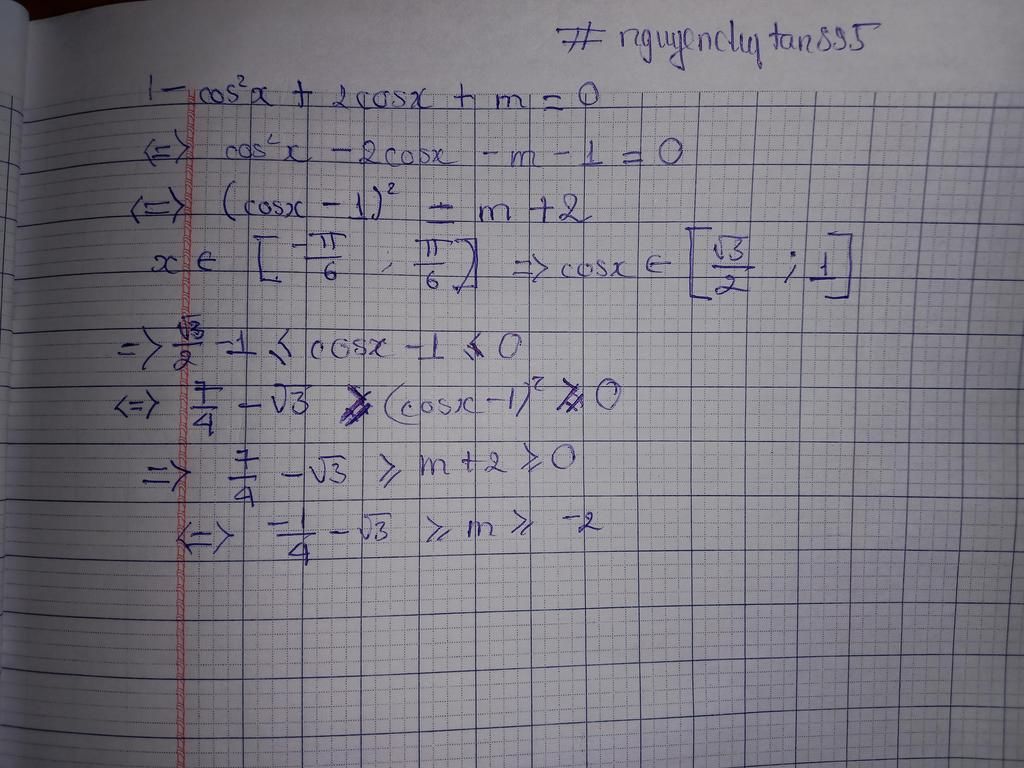 # nguyenduytan895
1 - cos²x + 2cosx + m = 0
<=> cos²x - 2cosx - m - 1 = 0
<=> (cosx - 1)² = m + 2
x ∈ [-π/6 ; π/6] => cosx ∈ [√3/2 ; 1]
=> √3/2 - 1 ≤ cosx - 1 ≤ 0
<=> 7/4 - √3 ≥ (cosx - 1)² ≥ 0
=> 7/4 - √3 ≥ m + 2 ≥ 0
<=> -1/4 - √3 ≥ m ≥ -2